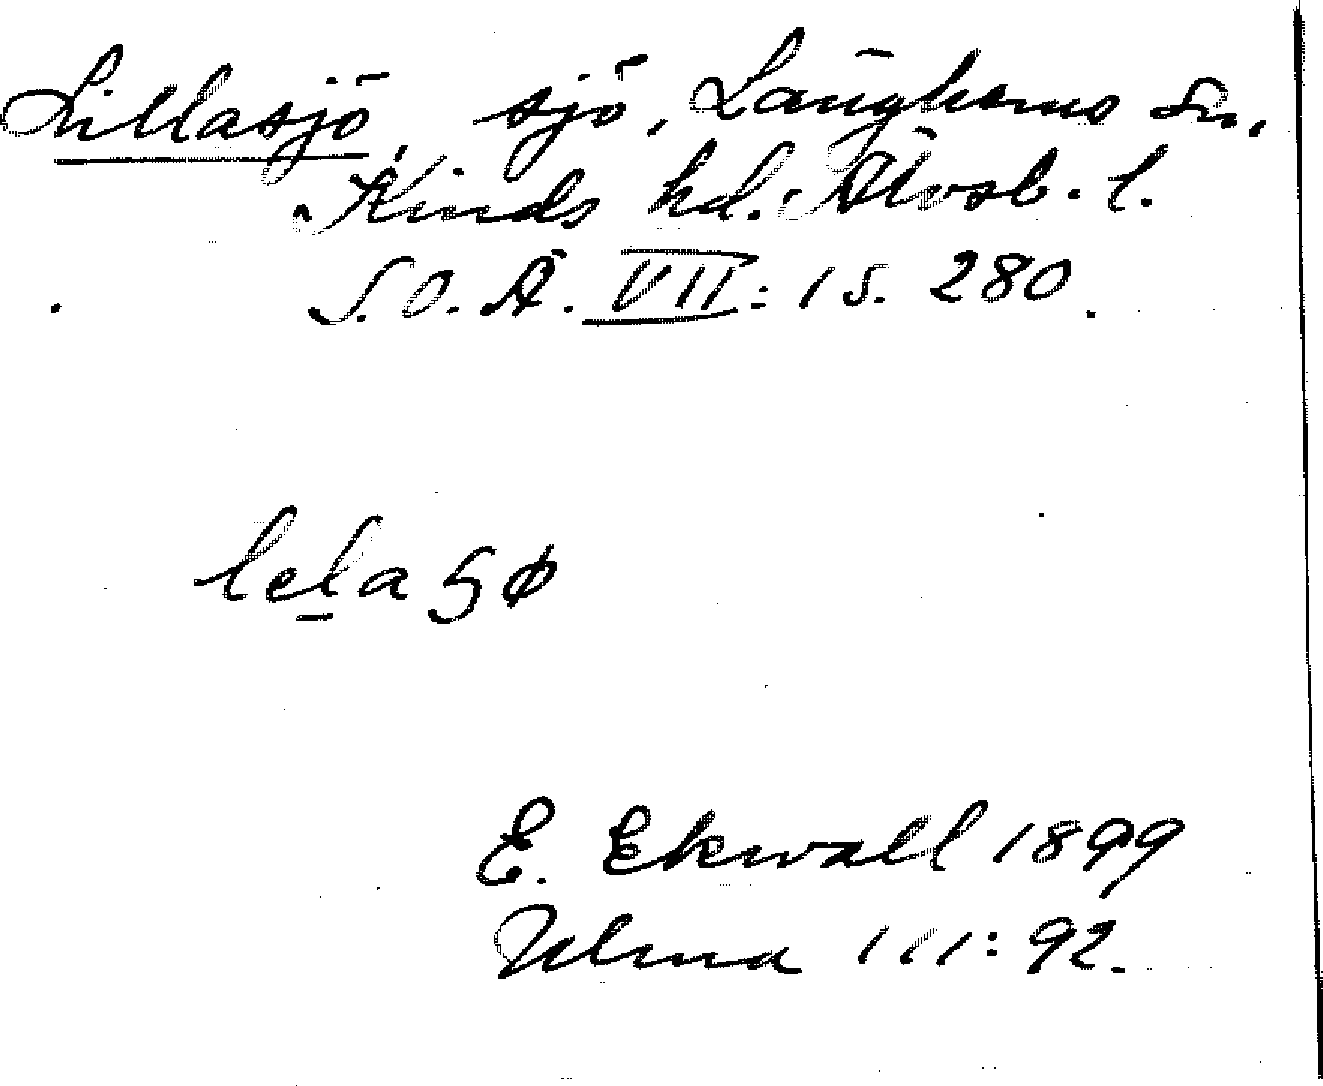 Lillasjö, sjö, Länghems sn,
Kinds hd. Älvsb. l.
S.O.Ä. VII: 1 s. 280.
lela ꞩø
E. Ekwall 1899
Ulma 111: 92.